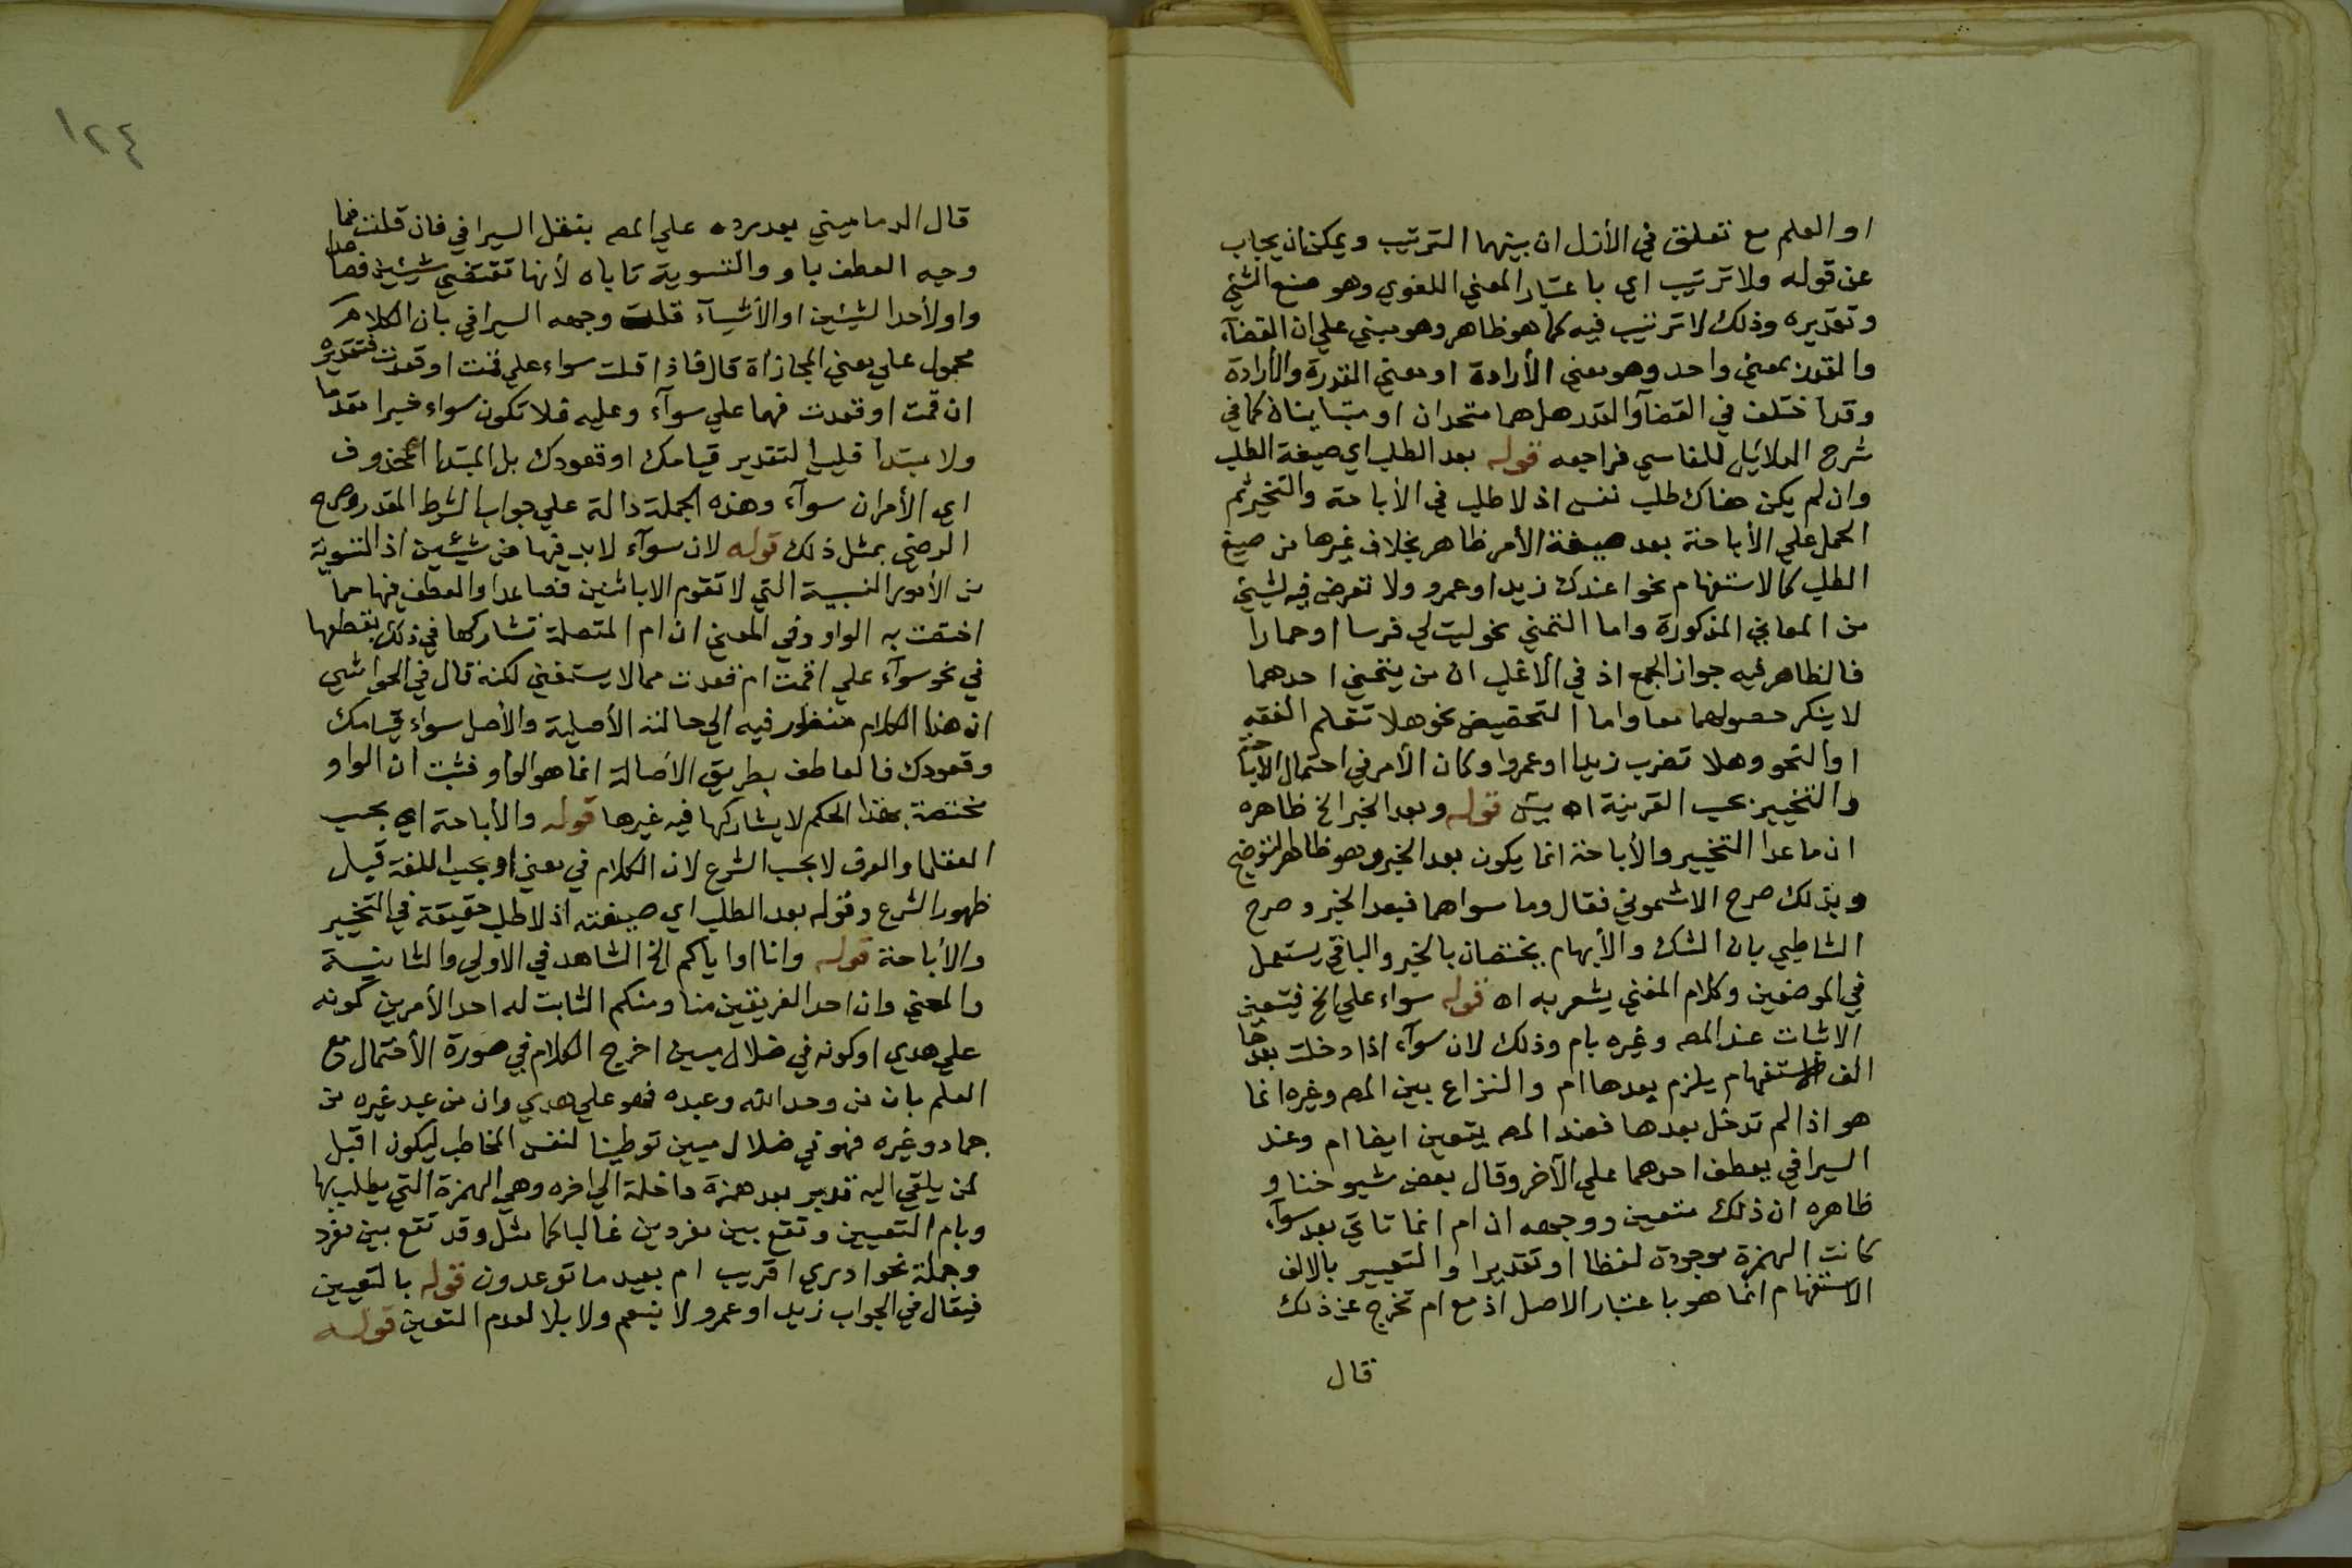 او العلم مع تعلق في الأزل ان بينهما الترتيب ويمكن ان يجاب
عن قوله ولا ترتيب اي باعتبار المعني اللغوي وهو صنع الشيئ
وتقديره وذلك لا ترتيب فيه كما هو ظاهر وهو مبني علي ان القضآء
والقدر بمعني واحد وهو بمعني الأرادة او بمعني القدرة والأرادة
وقد اختلف في القضآ والقدر هل هما متحدان او متباينان كما في
شرح الدلائل للفاسي فراجعه قوله بعد الطلب اي صيغة الطلب
وان لم يكن هناك طلب نفس اذ لا طلب في الأباحة والتخيير ثم
الحمل علي الأباحة بعد صيغة الأمر ظاهر بخلاف غيرها من صيغ
الطلب كالاستفهام نحو اعندك زيد او عمرو ولا تعرض فيه لشيئ
من المعاني المذكورة واما التمني نحو ليت لي فرسا او حمارا
فالظاهر فيه جواز الجمع اذ في الأغلب ان من يتمني احدهما
لا ينكر حصولهما معا واما التحضيض نحو هلا تتعلم الفقه
او النحو وهلا تضرب زيدا او عمروا وكان الأمر في احتمال الأباحة
والتخيير بحسب القرينة اه يس قوله وبعد الخبر الخ ظاهره
ان ما عدا التخيير والأباحة انما يكون بعد الخبر وهو ظاهر التوضيح
وبذلك صرح الاشموني فقال وما سواهما فبعد الخبر وصرح
الشاطبي بان الشك والأبهام يختصان بالخبر والباقي يستعمل
في الموضعين وكلام المغني يشعر به اه قوله سواء علي الخ فيتعين
الاتيان عند المص وغيره بام وذلك لان سوآء اذا دخلت بعدها
الف الاستفهام يلزم بعدها ام والنزاع بين المص وغيره انما
هو اذا لم تدخل بعدها فعند المص يتعين ايضا ام وعند
السيرافي يعطف احدهما علي الآخر وقال بعض شيوخنا و
ظاهره ان ذلك متعين ووجهه ان ام انما تاتي بعد سوآء
كانت الهمزة موجودة لفظا او تقديرا والتعبير بالالف
الاستفهام انما هو باعتبار الاصل اذ مع ام تخرج عن ذلك
قال
١٢٤
قال الدماميني بعد رده علي المص بنقل السيرافي فان قلت فما
وجه العطف باو والتسوية تاباه لأنها تقتضي شيئين فصاعدا
واو لأحد الشيئين او الأشيآء قلت وجهه السيرافي بان الكلام
محمول علي معني المجازاة قال فاذا قلت سواء علي قمت او قعدت فتقديره
ان قمت او قعدت فهما علي سوآء وعليه فلا تكون سواء خبرا مقدما
ولا مبتدا فليس التقدير قيامك او قعودك بل المبتدا المحذوف
اي الأمران سوآء وهذه الجملة دالة علي جواب الشرط المقدر وصرح
الرضي بمثل ذلك قوله لان سوآء لابد فيها من شيئين اذ التسوية
من الأمور النسبية التي لا تقوم الا باثنين فصاعدا والعطف فيها مما
اختصت به الواو وفي المغني ان ام المتصلة تشاركها في ذلك بعطفها
في نحو سوآء علي اقمت ام قعدت مما لا يستغني لكنه قال في الحواشي
ان هذا الكلام منظور فيه الي حالته الأصلية والأصل سواء قيامك
وقعودك فالعاطف بطريق الاصالة انما هو الواو فثبت ان الواو
مختصة بهذا الحكم لا يشاركها فيه غيرها قوله والأباحة اي بحسب
العقل او العرف لا بحسب الشرع لان الكلام في معني او بحسب اللغة قبل
ظهور الشرع وقوله بعد الطلب اي صيغته اذ لا طلب حقيقة في التخيير
والأباحة قوله وانا او اياكم الخ الشاهد في الاولي والثانية
والمعني وان احد الفريقين منا ومنكم الثابت له احد الأمرين كونه
علي هدي او كونه في ضلال مبين اخرج الكلام في صورة الأحتمال مع
العلم بان من وحد الله وعبده فهو علي هدي وان من عبد غيره من
جماد وغيره فهو في ضلال مبين توطينا لنفس المخاطب ليكون اقبل
لمن يلقي اليه بعد همزة داخلة الي اخره وهي الهمزة التي يطلب بها
وبام التعيين وتقع بين مفردين غالبا كما مثل وقد تقع بين مفرد
وجملة نحو ادري اقريب ام بعيد ما توعدون قوله بالتعيين
فيقال في الجواب زيد او عمرو لا بنعم ولا بلا لعدم التعين قوله